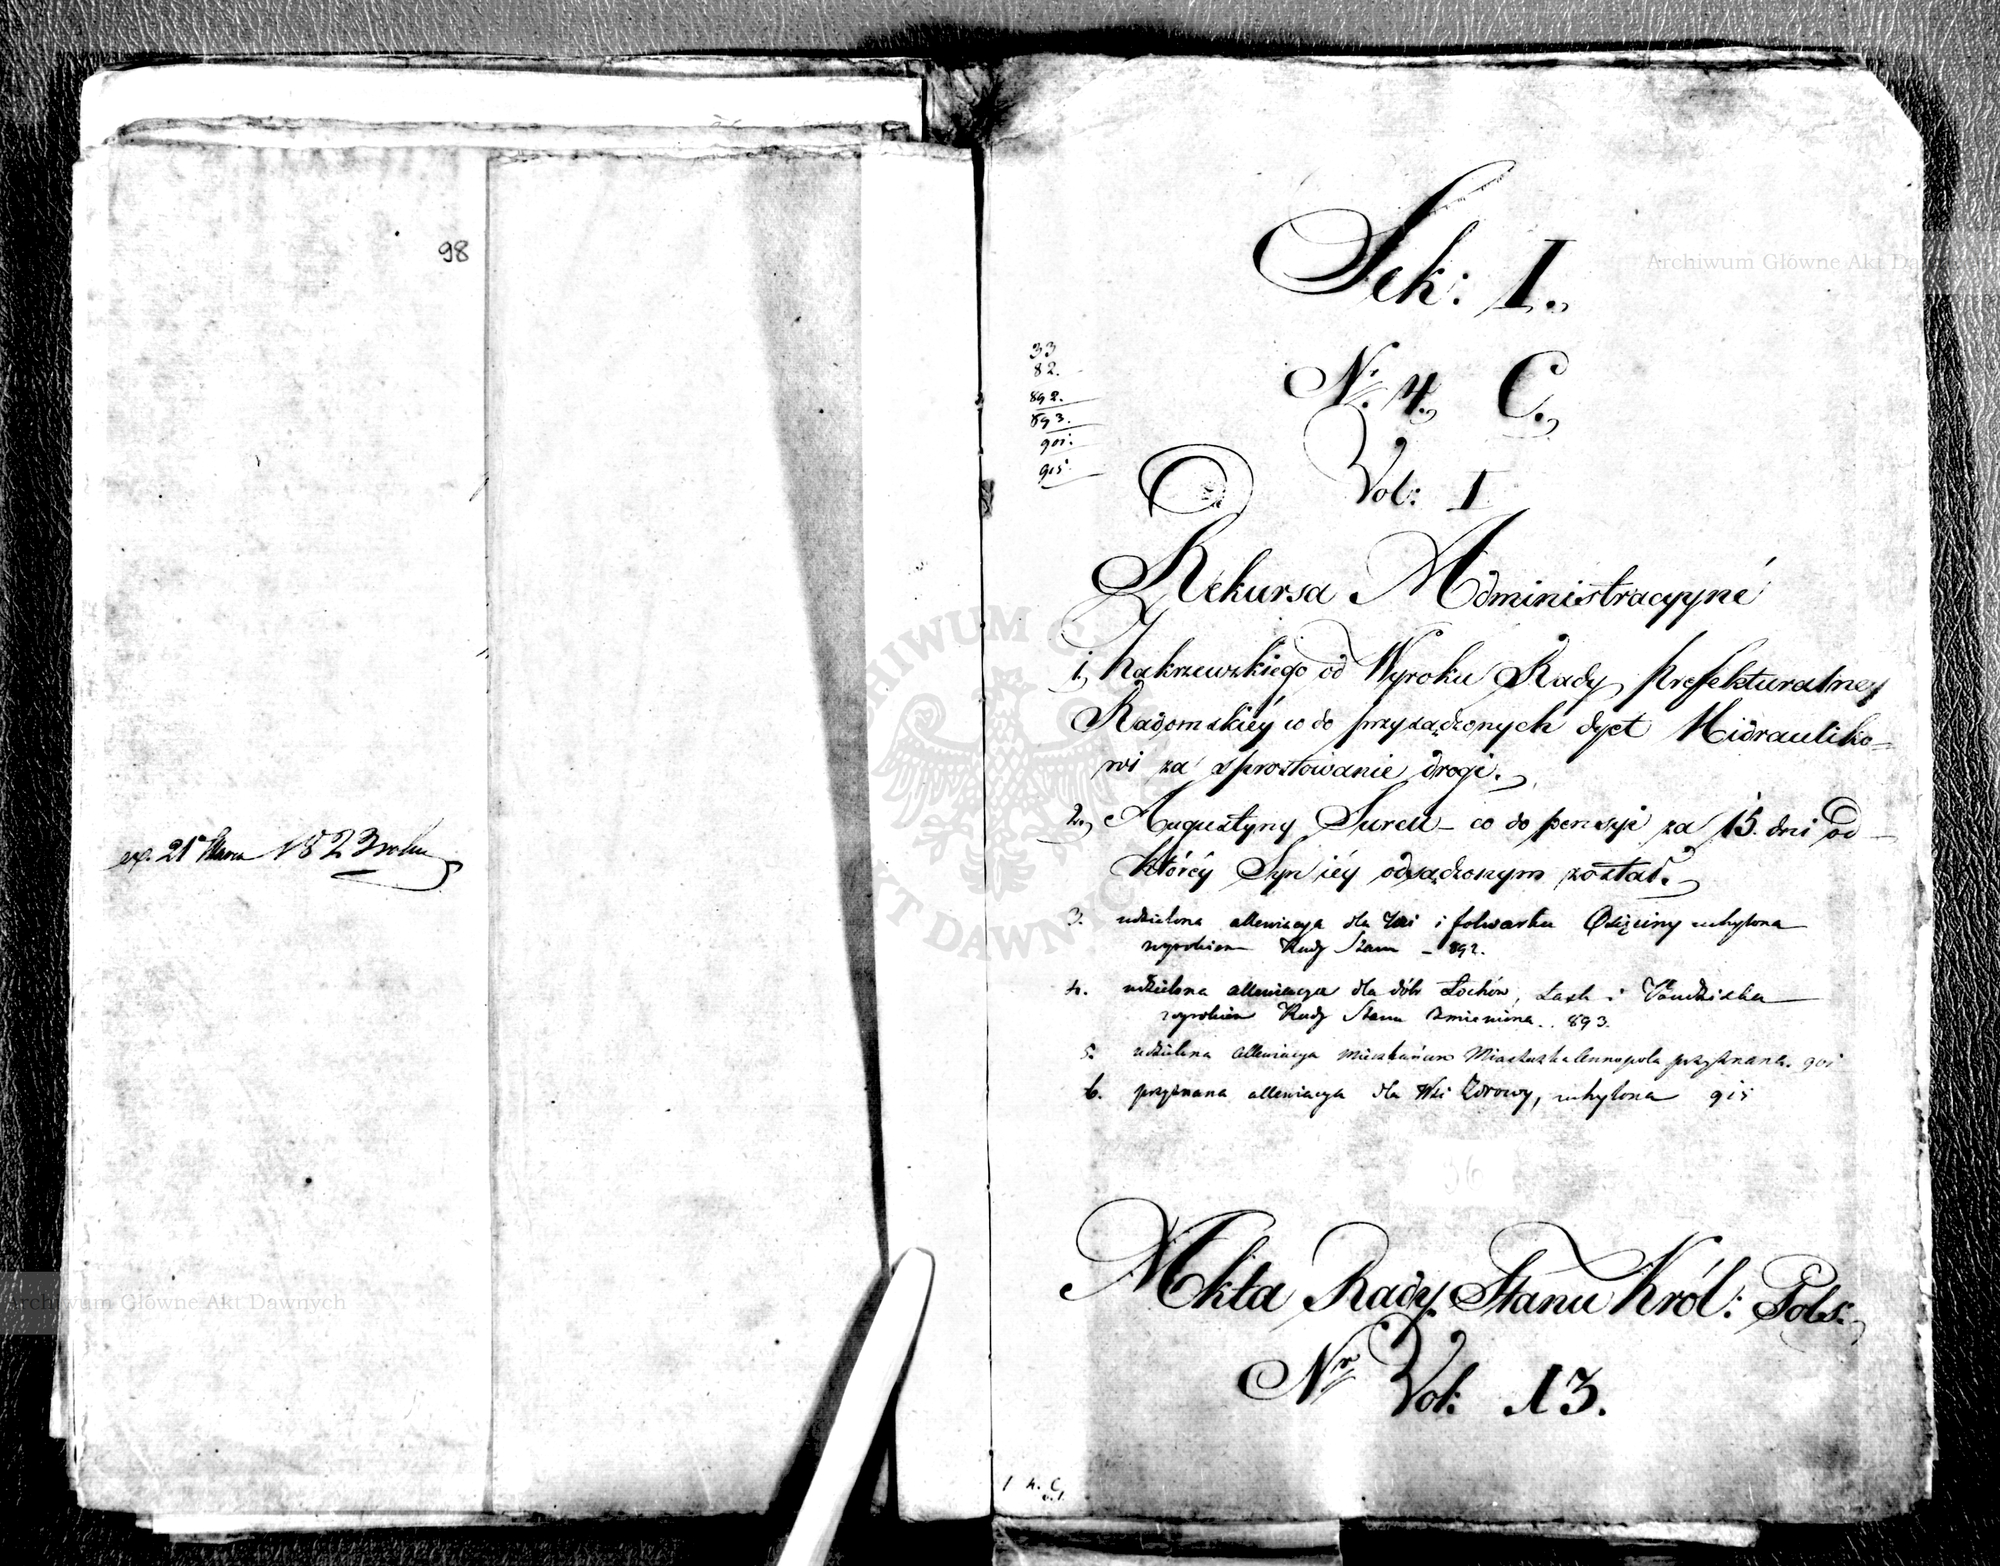 98
exp. 21 Marca 1823 roku
Archiwum Główne Akt Dawnych
Sek: I.
Archiwum Główne Akt Dawnych
33
82.
892.
893.
901.
915.
Nr. 4. C.
Vol: I
Rekursa Administracyyne
1, Zakrzewskiego od Wyroku Rady Prefekturalney
Radomskiéy co do przysądzonych dyet Hidrauliko-
wi za sprostowanie drogi.
2, Augustyny Sureu co do pensyi za 15. dni od
któréy Syn iéy odsądzonym został.
3. udzielona allewiacya dla Wsi i folwarku uchylona
wyrokiem Rady Stanu - 892.
4. udzielona allewiacya dla dóbr Łochów, Łazk i
wyrokiem Rady Stanu zmieniona. 893.
5. udzielona allewiacya mieszkańcom Miasteczka Annopola przyznana. 901
6. przyznana allewiacya dla Wsi Zdrowy, uchylona 915
36
Akta Rady Stanu Król: Pols:
Nr Vol: 13.
1 4. C.
v. 1.
ARCHIWUM AKT DAWNYCH